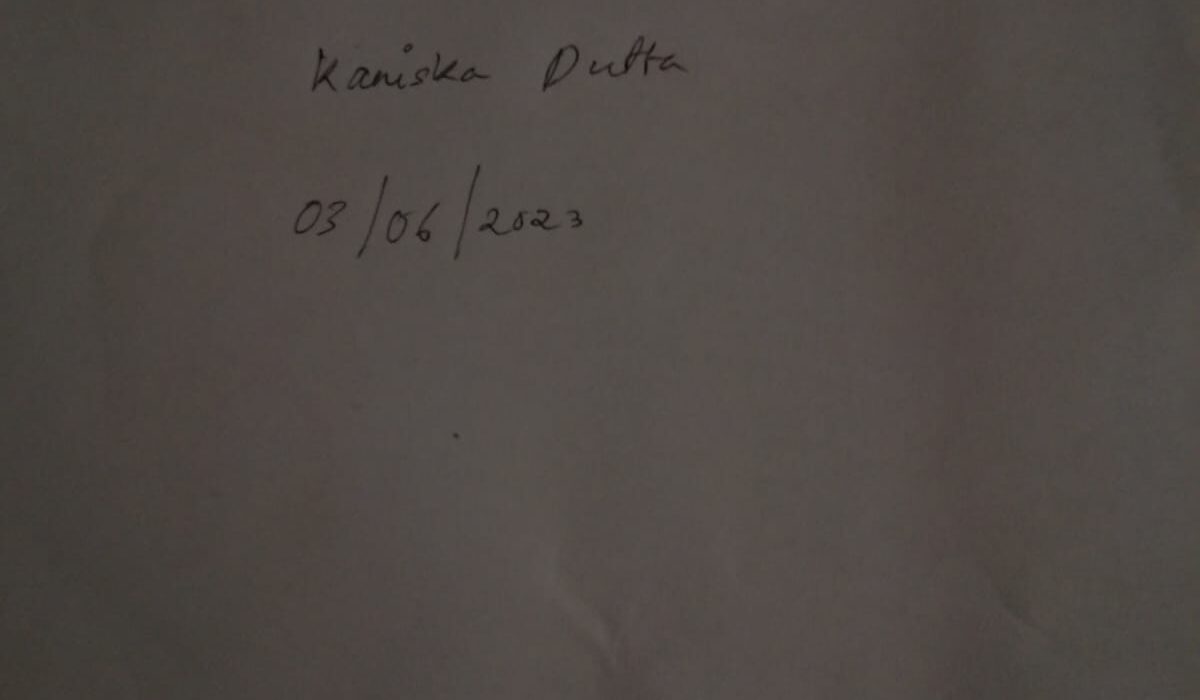 Kaniska Dutta
03/06/2023